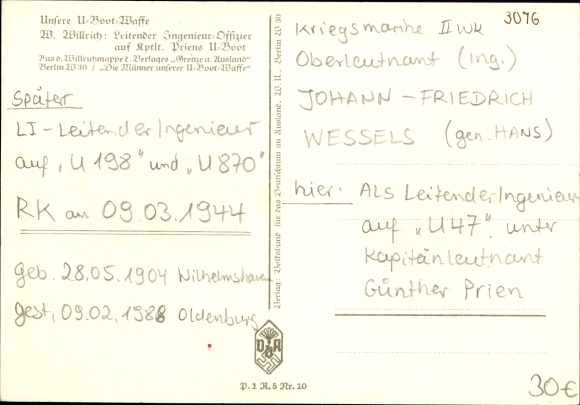 Unsere U-Boot-Waffe
W. Willrich: Leitender Ingenieur-Offizier
auf Kptlt. Priens U-Boot
Aus d. Willrichmappe d. Verlages „Grenze u. Ausland“
Berlin W 30 / „Die Männer unserer U-Boot-Waffe“
Später
LI - Leitender Ingenieur
auf „U 198" und „U 870"
RK am 09.03.1944
geb. 28.05.1904 Wilhelmshaven
gest. 09.02.1988 Oldenburg
Verlag: Volksbund für das Deutschtum im Ausland, W. U., Berlin W 30
3076
Kriegsmarine II WK
Oberleutnant (Ing.)
JOHANN - FRIEDRICH
WESSELS (gen. HANS)
hier: ALS Leitender Ingenieur
auf „U47" unter
Kapitänleutnant
Günther Prien
VDA
P. 1 R. 5 Nr. 10
30€